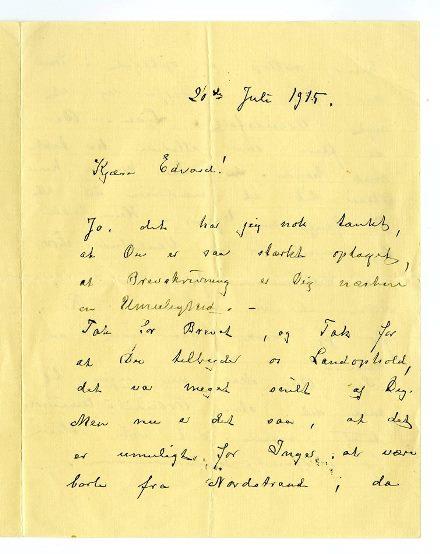 20de Juli 1915.
Kjære Edvard!
Jo, det har jeg nok tænkt,
at Du er saa stærkt optaget,
at Brevskrivning er Dig næsten
en Umulighed. -
Tak for Brevet, og Tak for
at Du tilbyder os Landophold,
det var meget snilt af Dig.
Men nu er det saa, at det
er umuligt for Inger at være
borte fra Nordstrand; da